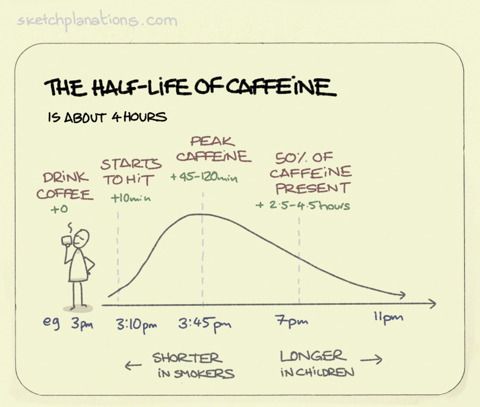 sketchplanations.com
THE HALF-LIFE OF CAFFEINE
IS ABOUT 4 HOURS
DRINK
COFFEE
+0
STARTS
TO HIT
+10min
PEAK
CAFFEINE
+45-120min
50% OF
CAFFEINE
PRESENT
+ 2.5-4.5hours
eg 3pm
3:10pm
3:45pm
7pm
11pm
← SHORTER
IN SMOKERS
LONGER →
IN CHILDREN